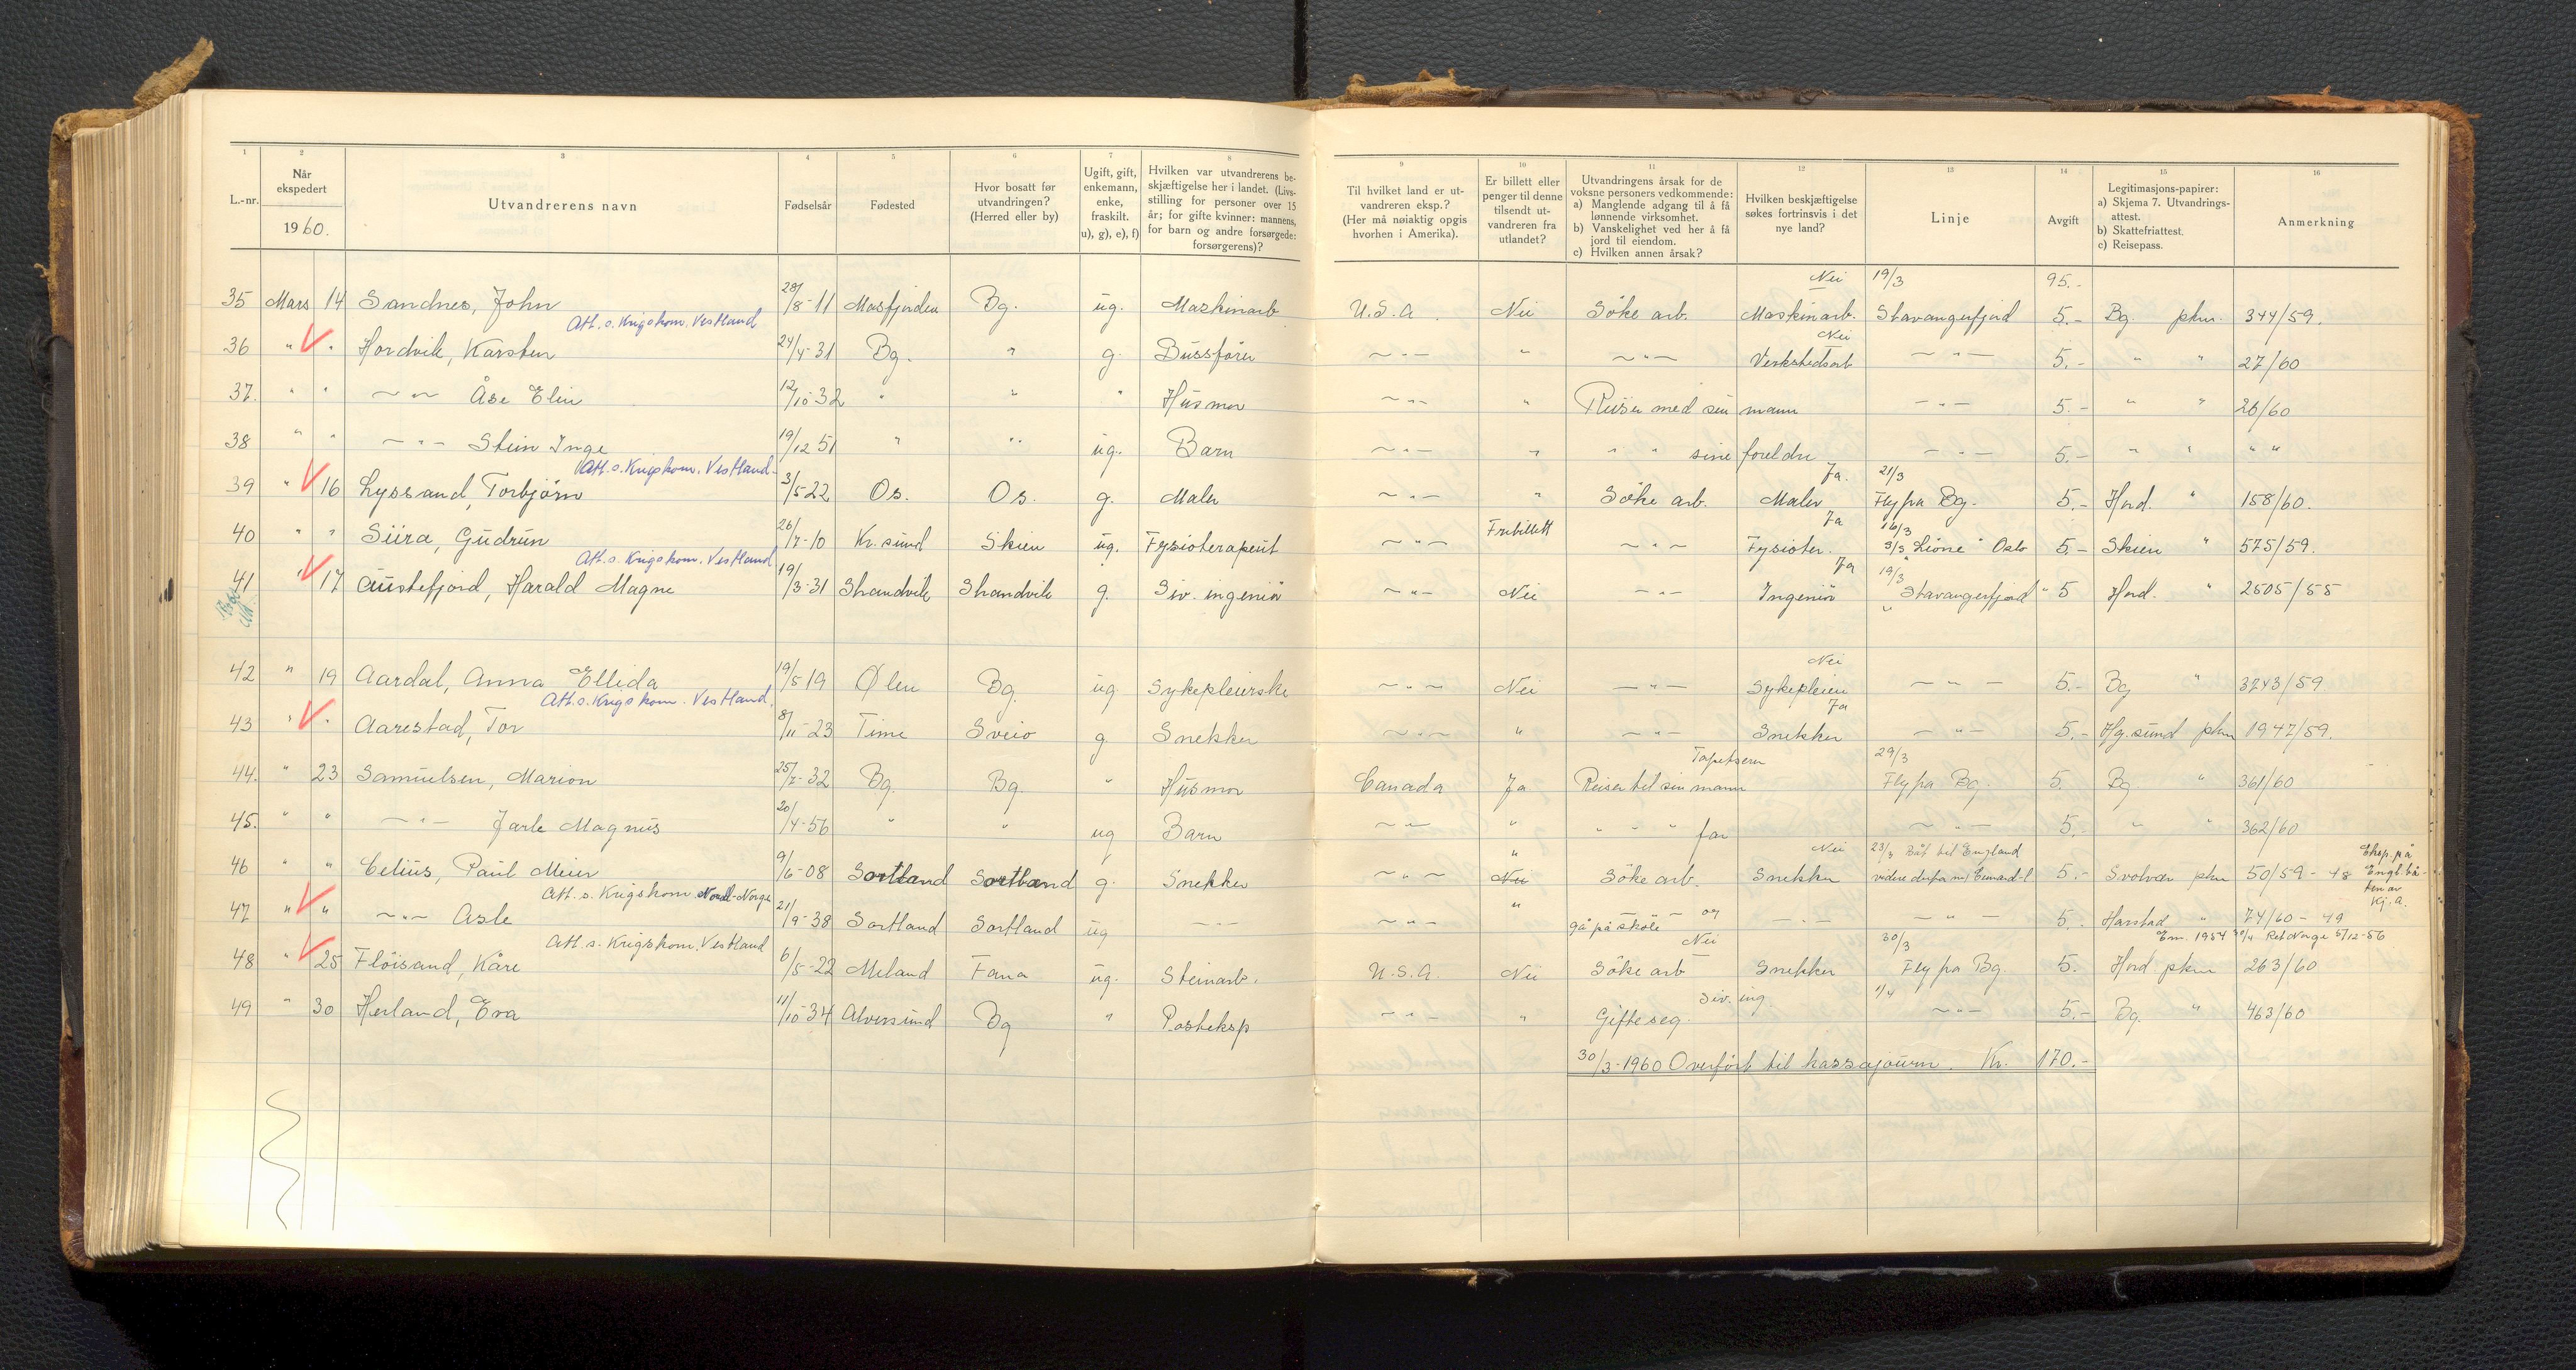 1 2 3 4 5 6 7 8 9 10 11 12 13 14 15 16
L.-nr.
Når ekspedert
1960.
Utvandrerens navn
Fødselsår
Fødested
Hvor bosatt før utvandringen? (Herred eller by)
Ugift, gift, enkemann, enke, fraskilt. u), g), e), f)
Hvilken var utvandrerens beskjæftigelse her i landet. (Livsstilling for personer over 15 år; for gifte kvinner: mannens, for barn og andre forsørgede: forsørgerens)?
Til hvilket land er utvandreren eksp.? (Her må nøiaktig opgis hvorhen i Amerika).
Er billett eller penger til denne tilsendt utvandreren fra utlandet?
Utvandringens årsak for de voksne personers vedkommende:
a) Manglende adgang til å få lønnende virksomhet.
b) Vanskelighet ved her å få jord til eiendom.
c) Hvilken annen årsak?
Hvilken beskjæftigelse søkes fortrinsvis i det nye land?
Linje
Avgift
Legitimasjons-papirer:
a) Skjema 7. Utvandringsattest.
b) Skattefriattest.
c) Reisepass.
Anmerkning
Nei 19/3 95.-
35 Mars 14 Sandnes, John 28/8-11 Masfjorden Bg. ug. Maskinarb U.S.A. Nei Söke arb. Maskinarb. Stavangerfjord 5.- Bg. pkm. 344/59.
Att. s. Krigskom. Vestland
Nei
36 " " Hordvik, Karsten 24/4-31 Bg. " g. Bussförer -"- " -"- Verkstedsarb -"- 5.- " " 27/60
37. " " -"- Åse Elin 12/10-32 " " " Husmor -"- " Reiser med sin mann -"- 5.- " " 26/60
38 " " -"- Stein Inge 19/12 51 " " ug. Barn -"- " " " sine foreldre -"- 5.- " " " "
Att. s. Krigskom. Vestland. Ja. 21/3
39 " 16 Lyssand, Torbjörn 3/5-22 Os. Os. g. Maler -"- " Söke arb. Maler Fly fra Bg. 5.- Hord. " 158/60.
Ja 16/3
40 " " Siira, Gudrun 26/7-10 Kr.sund Skien ug. Fysioterapeut -"- Fribillett -"- Fysioter. "Lione" Oslo 5.- Skien " 575/59.
Att. s. Krigskom. Vestland Ja 19/3
41 " 17 Austefjord, Harald Magne 19/3-31 Strandvik Strandvik g. Siv. ingeniör -"- Nei -"- Ingeniör "Stavangerfjord" 5 Hord. " 2505/55
Nei
42 " 19 Aardal, Anna Ellida 19/5 19 Ølen Bg. ug Sykepleierske -"- Nei -"- Sykepleier -"- 5.- Bg " 3243/59
Att. s. Krigskom. Vestland. Ja
43 " " Aarestad, Tor 8/11-23 Time Sveio g Snekker -"- " -"- Snekker -"- 5.- Hg.sund pkm 1947/59.
Tapetserer 29/3
44. " 23 Samuelsen, Marion 25/7-32 Bg. Bg. " Husmor Canada Ja Reiser til sin mann Fly fra Bg. 5. Bg. " 361/60
45. " " -"- Jarle Magnus 20/4-56 " " ug Barn -"- " " " " far -"- 5.- " " 362/60
" Nei 23/3 Båt til England Eksp. på
46 " " Celius, Paul Meier 9/6-08 Sortland Sortland g. Snekker -"- Nei Söke arb. Snekker videre derfra m/ Cunard-l 5.- Svolvær pkm 50/59 - 48 Engl.båten av Kj. a.
Att. s. Krigskom. Nordl-Norge
47 " " -"- Asle 21/9-38 Sortland Sortland ug -"- -"- " -"- og gå på skole -"- -"- 5.- Harstad " 74/60 - 49
Att. s. Krigskom. Vestland Nei 30/3 Em. 1954 30/4 Ret Norge 5/12-56
48 " 25 Flöisand, Kåre 6/5-22 Meland Fana ug. Steinarb. U.S.A. Nei Söke arb Snekker Fly fra Bg. 5. Hord pkm 263/60
Siv. ing. 1/4
49 " 30 Herland, Eva 11/10-34 Alversund Bg " Posteksp -"- " Gifte seg. -"- 5.- Bg. " 463/60
30/3-1960 Overfört til kassajourn. Kr. 170.-